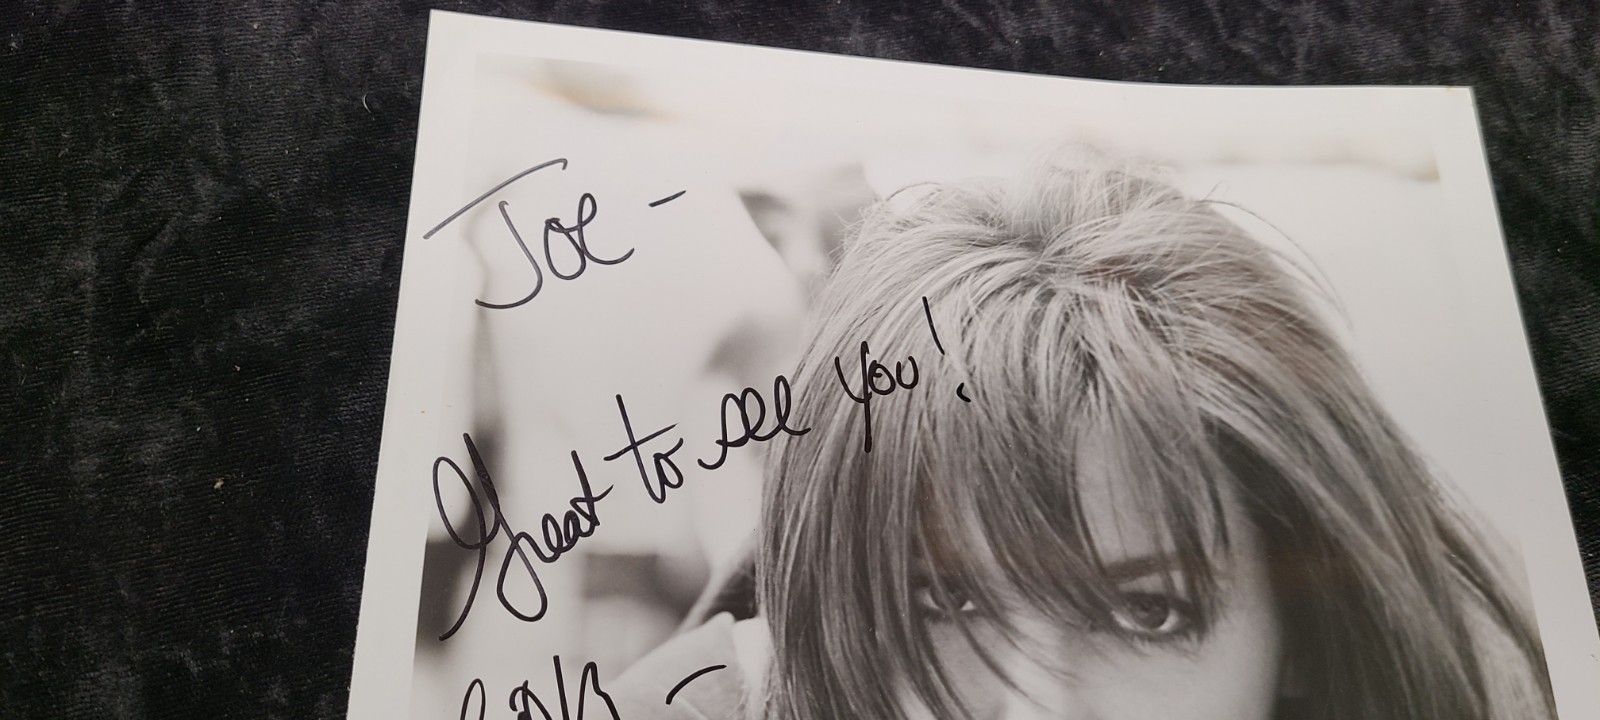 Joe -
Great to see you!